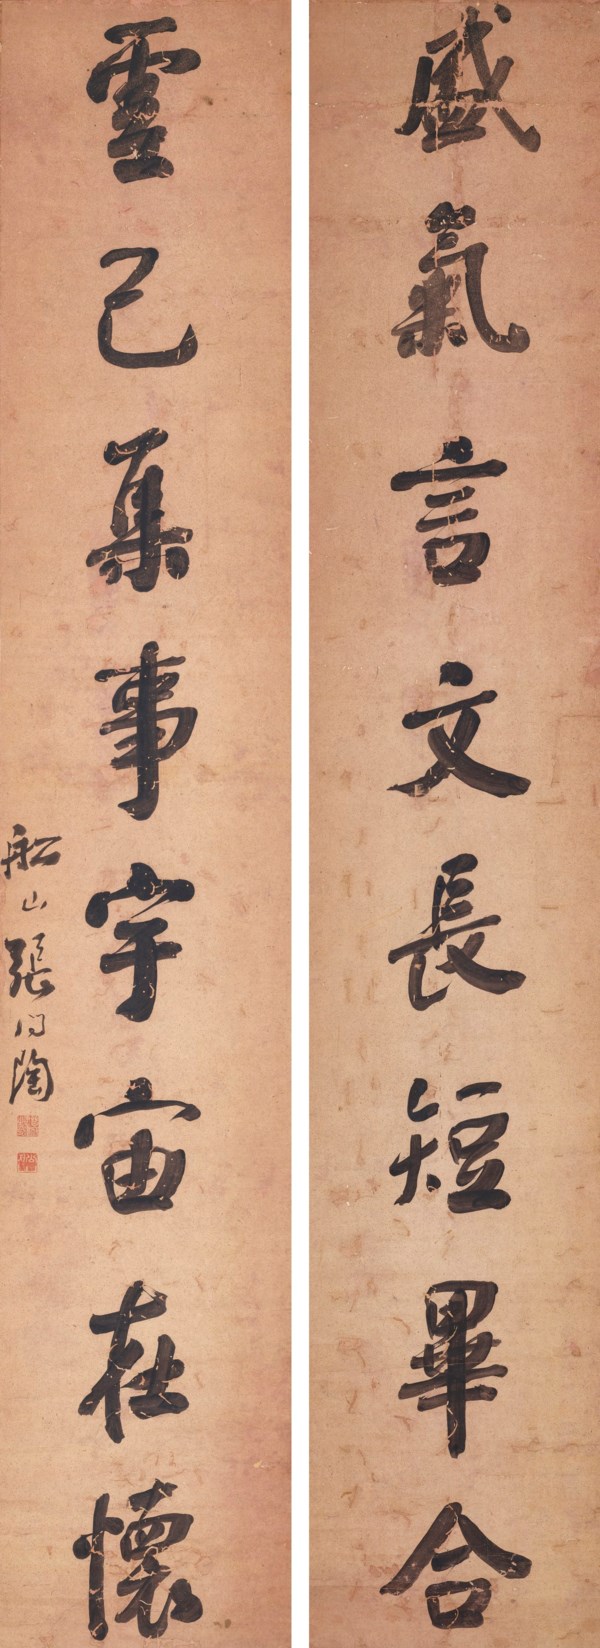 盛氣言文長短畢合
虛己集事宇宙在懷
船山張問陶